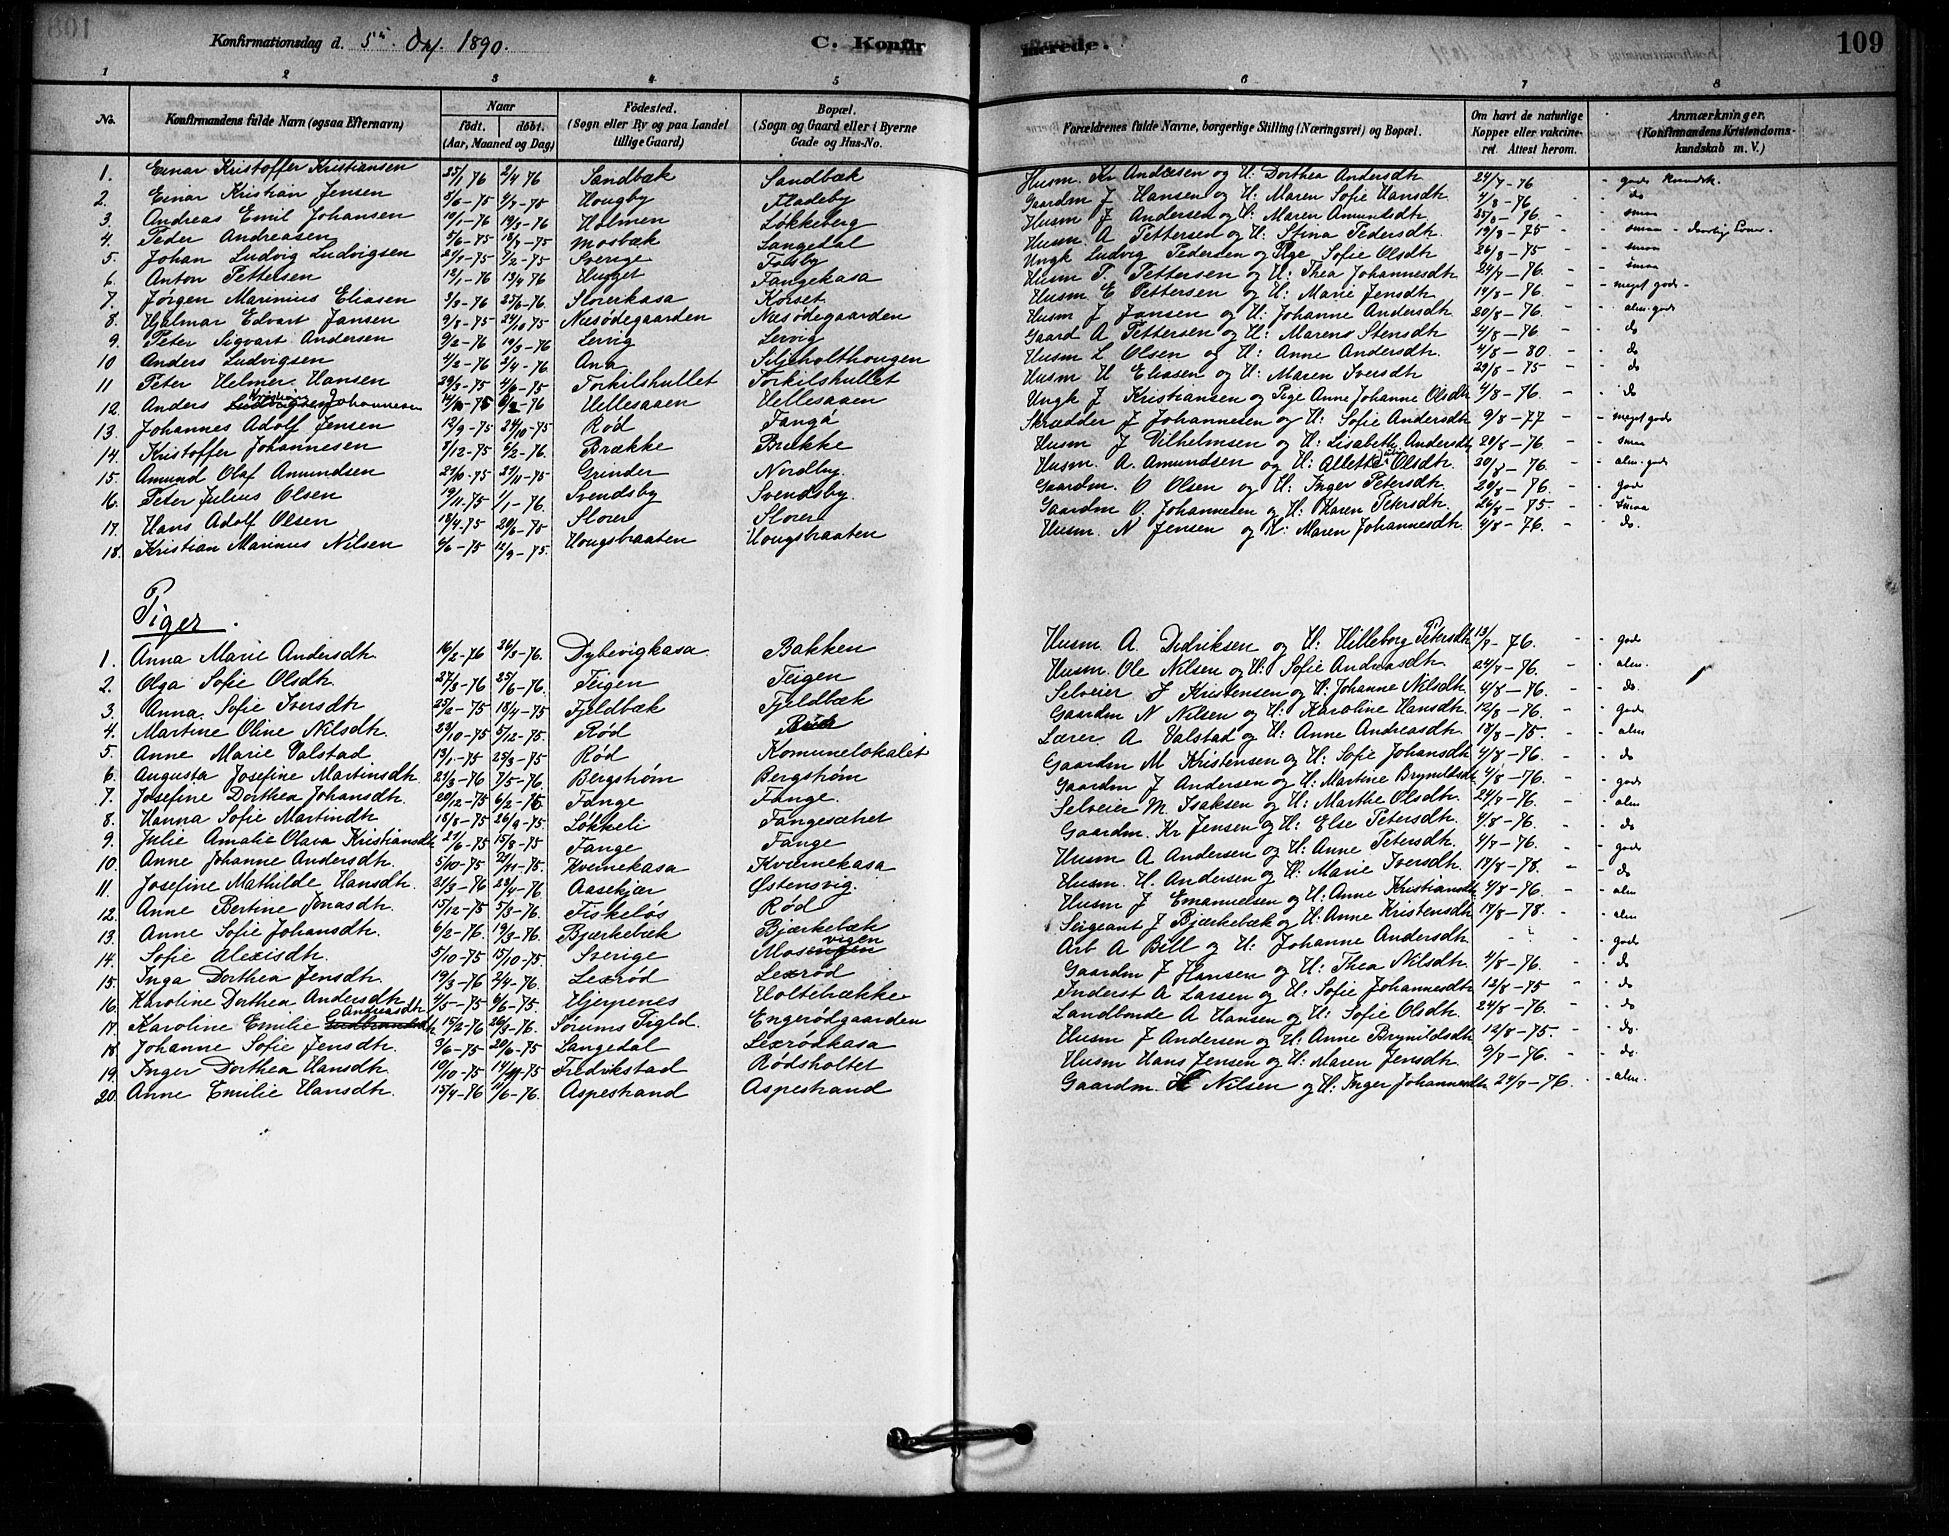 Konfirmationsdag d. 5te Okt. 1890. C. Konfirmerede. 109
1 2 3 4 5 6 7 8
No. Konfirmandens fulde Navn (ogsaa Efternavn) Naar födt. döbt. (Aar, Maaned og Dag) Födested. (Sogn eller By og paa Landet tillige Gaard) Bopæl. (Sogn og Gaard eller i Byerne Gade og Hus-No. Forældrenes fulde Navne, borgerlige Stilling (Næringsvei) og Bopæl. Om havt de naturlige Kopper eller vakcineret. Attest herom. Anmærkninger. (Konfirmandens Kristendomskundskab m. V.)
1. Einar Kristoffer Kristiansen 25/1 76 2/4 76 Sandbæk Sandbæk Husm. Kr Andresen og H: Dorthea Andersdtr 24/7-76 - gods Kundsk.
2. Einar Kristian Jensen Hougby Fladeby Gaardm J Hansen og H: Maren Sofie Hansdtr 4/8-76 - do
3. Andreas Emil Johansen Holmen Lökkeberg Husm J Andersen og H: Maren Amundsdtr 25/8-76 - smaa
4. Peder Andreasen Mosbæk Langedal Husm. A Pettersen og H: Stina Pedersdtr 19/8-75 - smaa
5. Johan Ludvig Ludvigsen Sverige Folsby Ungk Ludvig Pedersen og Pige Sofie Olsdtr 26/8-75 - smaa
6. Anton Pettersen 12/1-76 13/4 76 Hunget Tangekasa Husm T. Pettersen og H: Thea Johannesdtr 24/7-76 - smaa
7. Jörgen Marinius Eliasen Slorerkasa Korset Husm. E Pettersen og H: Marie Jensdtr 14/8-76. - meget gods -
8. Hjalmar Edvart Jansen 9/8-75 24/10 75 Næsödegaarden Næsödegaarden Husm J Jansen og H: Johanne Andersdtr 20/8-76. - alm. gods
9. Peter Sigvart Andersen 9/2-76 19/3-76 Lervig Lervig Gaard A Pettersen og H: Maren Stensdtr 4/8-76 - do
10 Anders Ludvigsen 4/2-76 2/4-76 Ana Siljeholthougen Husm L Olsen og H: Anne Andersdtr. 4/8-80. - do
11 Peter Helmer Hansen Torkilshullet Torkilshullet Husm H Eliasen og H: Maren Iversdtr 29/8-75 - do
12. Anders Kristian Johannesen Hellesaaen Hellesaaen Ungk J Kristiansen og Pige Anne Johanne Olsdtr 4/8-76 - do
13. Johannes Adolf Jensen 12/9-75 24/10-75 Röd Tangö Skrædder J Johannesen og H: Sofie Andersdtr 9/8-77 - meget gods
14 Kristoffer Johannesen Brække Brække Husm J Vilhelmsen og H: Lisabeth Andersdtr 20/8-76 - smaa
15. Amund Olaf Amundsen Grinder Nordby. Husm. A. Amundsen og H: Allette Olsdtr. 20/8-76. - alm. gods
16. Peter Julius Olsen 19/11-75 1/1-76. Svendsby Svendsby. Gaardm. O Olsen og H: Inger Petersdtr. 20/8-76 - gods
17. Hans Adolf Olsen 18/4-75 20/6-75 Slorer Slorer Gaardm O. Johannesen og H: Karen Petersdtr. 26/8-75 - smaa
18. Kristian Marinus Nilsen 6/6-75 12/9-75. Hougsbraaten Hougsbraaten Husm. N Jensen og H: Maren Johannesdtr 4/8-76. - do.
Piger.
1. Anna Marie Andersdtr 16/2-76 26/3-76. Dybevigkasa. Bakken Husm A. Didriksen og H: Hilleborg Petersdtr 13/7-76. - gods
2. Olga Sofie Olsdtr. 27/3-76 25/6-76. Teigen Teigen Husm. Ole Nilsen og H: Sofie Andreasdtr. 24/7-76. - alm.
3. Anna Sofie Iversdtr 25/2-75 18/4-75 Fjeldbæk Fjeldbæk Selveier J Kristensen og H: Johanne Nilsdtr. 4/8-76. - do.
4. Martine Oline Nilsdtr. 23/10-75 5/12-75. Röd Röd Gaardm N Nilsen og H: Karoline Hansdtr 12/8-76. - gods
5. Anne Marie Valstad 13/1-75 25/3-75 Röd Komunelokalet Lærer A Valstad og H: Anne Andreasdtr. 18/8-75. - alm
6. Augusta Josefine Martinsdtr. 21/3-76 7/5-76. Bergström Bergström Gaardm M Kristensen og H: Sofie Johansdtr 4/8-76. - do
7. Josefine Dorthea Johansdtr. 20/12-75 6/2-76 Tange Tange. Gaardm J Andersen og H: Martine Brynildsdtr 4/8-76. - gods
8 Hanna Sofie Martinsdtr 18/8-75 26/9-75. Lökkeli Tangesætret Selveier M. Isaksen og H: Marthe Olsdtr. 24/7-76. - alm
9. Julie Amalie Olava Kristiansdtr 27/6-75 15/8-75 Tange Tange Gaardm. Kr Jensen og H: Else Petersdtr. 4/8-76. - do
10. Anne Johanne Andersdtr. 5/10-75 21/11-75. Kvernekasa Kværnekasa Husm A Andersen og H: Anne Petersdtr. 4/7-76. - gods
11. Josefine Mathilde Hansdtr. 21/3-76 23/4-76 Aasekjær Østensvig. Husm. H. Andersen og H: Marie Iversdtr. 17/8-78. - do
12. Anne Bertine Jonasdtr. 15/12-75 5/3-76. Fiskelös Röd Husm J Emanuelsen og H: Anne Kristiansdtr 4/8-76. - alm
13. Anne Sofie Johansdtr. 6/2-76. 19/3-76. Bjærkebæk Bjærkebæk Sergeant J Bjærkebæk og H: Anne Kristensdtr 17/8-78. - alm
14. Sofie Alexisdtr. 5/10-75 15/10-75. Sverige Mosevigen Arb A Bill og H: Johanne Andersdtr - gods
15. Inga Dorthea Jensdtr. 19/3-76 2/4-76. Lexröd Lexröd Gaardm J Hansen og H: Thea Nilsdtr. 4/8-76. - do
16. Karoline Dorthea Andersdtr 4/5-75 6/6-75. Hjerpenes Holtebrække Inderst A Larsen og H: Sofie Johannesdtr 12/8-75 - do
17. Karoline Emilie Andreasdtr 15/2-76 26/3-76. Sörums Tigld. Engerödgaarden Landbonde A Hansen og H: Sofie Olsdtr. 24/8-76. - do
18. Johanne Sofie Jensdtr. 3/6-75 20/6-75 Langedal Lexrödkasa Husm J Andersen og H: Anne Brynildsdtr 12/8-75. - do.
19. Inger Dorthea Hansdtr. 19/10-75 14/11-75 Fredrikstad Rödsholtet Husm Hans Jensen og H: Maren Jensdtr. 9/7-76. - do.
20. Anne Emilie Hansdtr. 15/4-76 11/6-76. Aspestrand Aspestrand Gaardm. H Nilsen og H: Inger Johannesdtr 24/7-76. - alm.